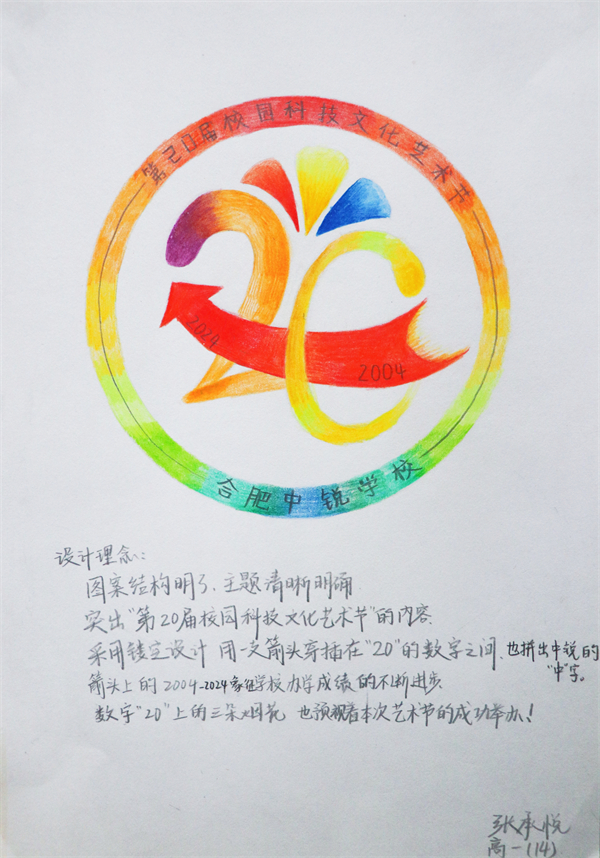 第20届校园科技文化艺术节
2024
2004
合肥中锐学校
设计理念:
图案结构明了、主题清晰明确
突出“第20届校园科技文化艺术节”的内容.
采用镂空设计 用一支箭头穿插在“20”的数字之间.也拼出中锐的“中”字。
箭头上的2004-2024象征学校办学成绩的不断进步.
数字“20”上的三朵烟花 也预祝着本次艺术节的成功举办!
张承悦
高一(14)